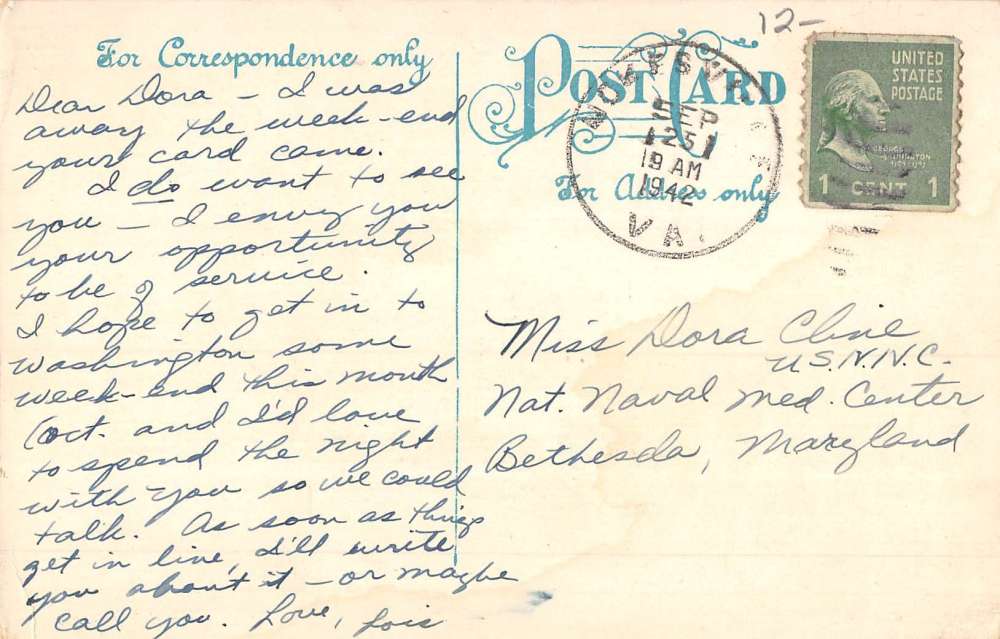 12-
For Correspondence only
Dear Dora - I was
away the week-end
your card came.
I do want to see
you - I envy you
your opportunity
to be of service.
I hope to get in to
Washington some
week-end this month
(Oct. and I'd love
to spend the night
with you so we could
talk. As soon as things
get in line, I'll write
you about it - or maybe
call you. Love, Lois
POST CARD
For Address only
SEP
25
9 AM
1942
VA.
UNITED
STATES
POSTAGE
GEORGE
WASHINGTON
1 CENT 1
Miss Dora Cline
U.S.N.N.C.
Nat. Naval Med. Center
Bethesda, Maryland